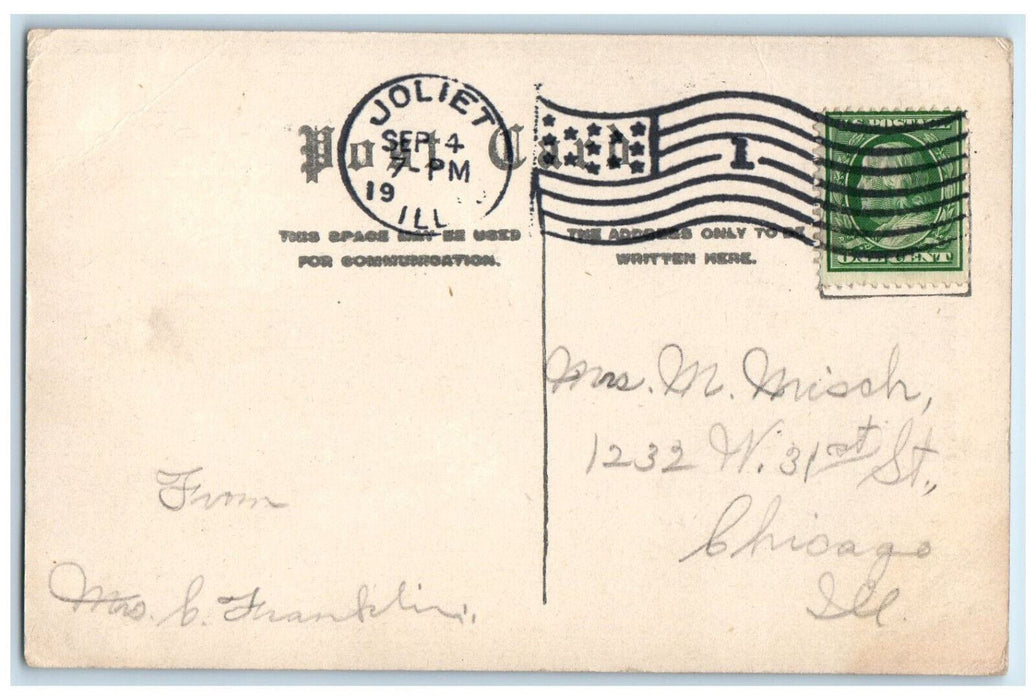 Post Card
JOLIET
SEP 4
7 PM
19
ILL
1
U.S. POSTAGE
ONE CENT
THIS SPACE MAY BE USED
FOR COMMUNICATION.
THE ADDRESS ONLY TO BE
WRITTEN HERE.
Mrs. M. Misch,
1232 W. 31st St.,
Chicago
Ill.
From
Mrs. C. Franklin.